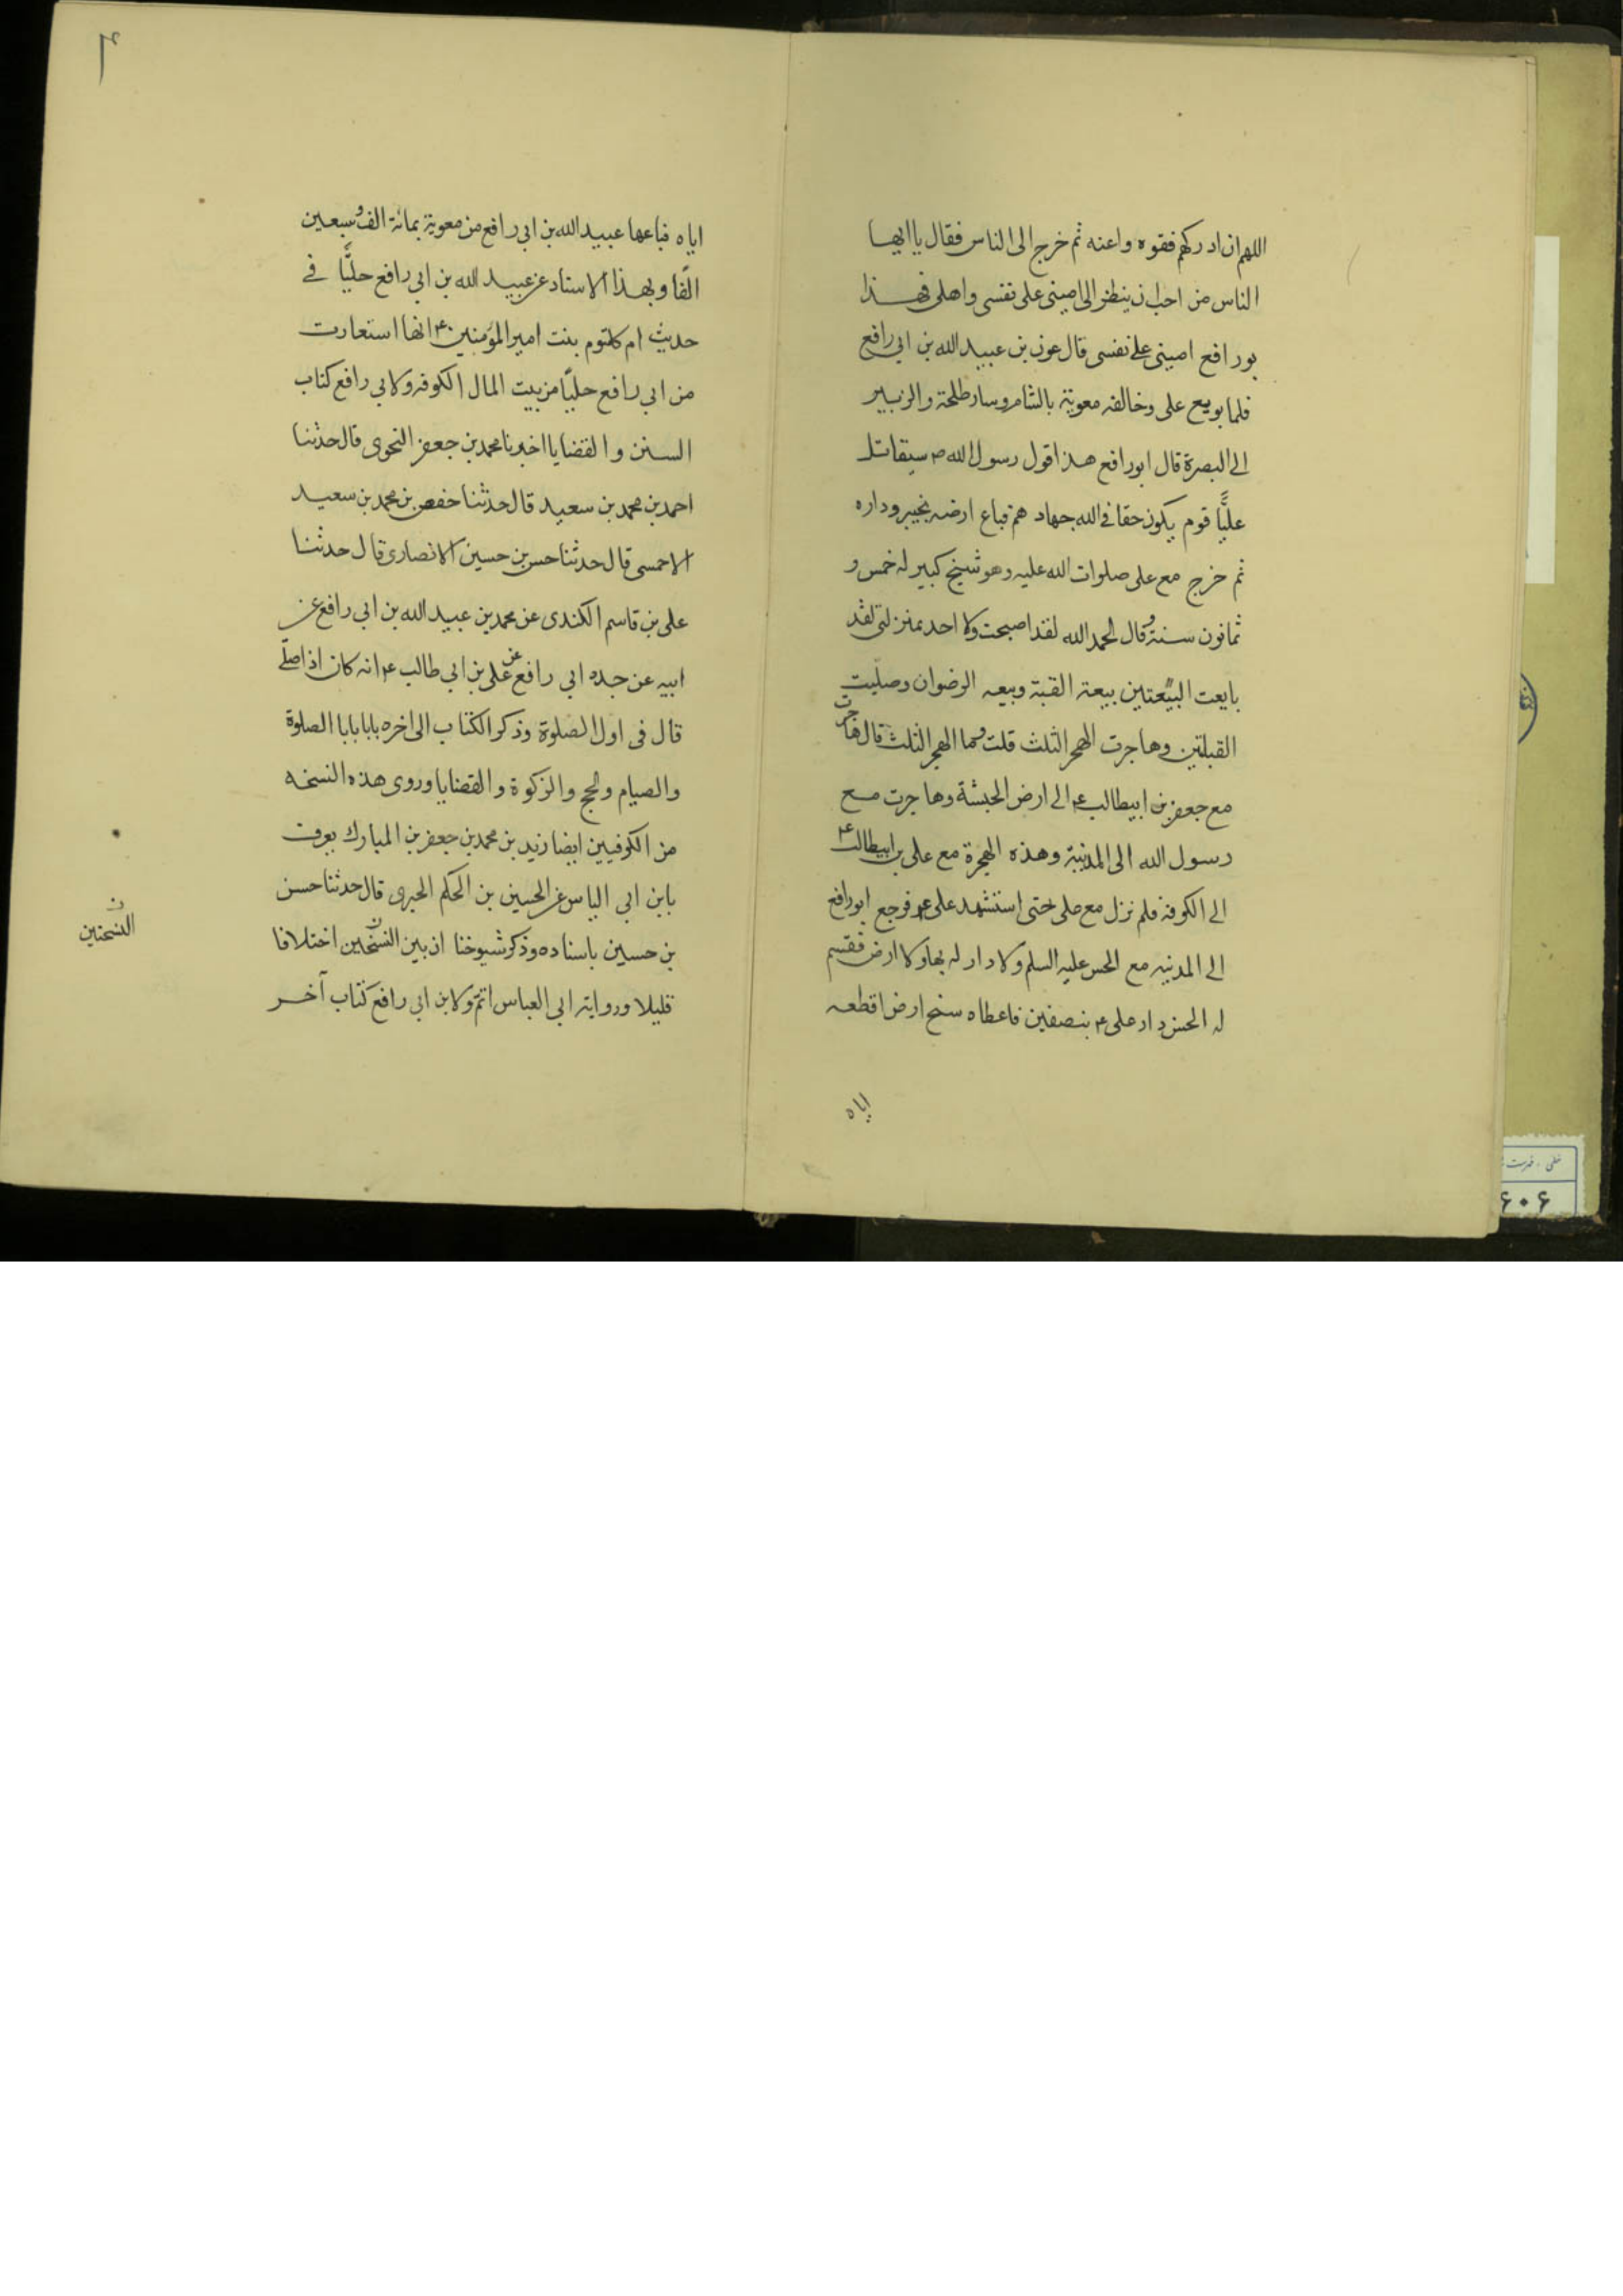 اللهم ان ادركهم فقوه واعنه ثم خرج الى الناس فقال يا ايها
الناس من احب ان ينظر الى امينى على نفسى واهلى فهذا
بورافع امينى على نفسى قال عون بن عبيد الله بن ابي رافع
فلما بويع على وخالفه معوية بالشام وسار طلحة والزبير
الى البصرة قال ابورافع هذا قول رسول الله ص سيقاتل
عليًّا قوم يكون حقا فى الله جهادهم فباع ارضه بخيبر وداره
ثم خرج مع على صلوات الله عليه وهو شيخ كبير له خمس و
ثمانون سنة وقال الحمد الله لقد اصبحت ولا احد بمنزلتى لقد
بايعت البيعتين بيعة القبة وبيعه الرضوان وصليت
القبلتين وهاجرت الهجر الثلث قلت وما الهجر الثلث قال هاجرت
مع جعفر بن ابيطالب ع الى ارض الحبشة وهاجرت مع
رسول الله الى المدينة وهذه الهجرة مع على بن ابيطالب ع
الى الكوفة فلم نزل مع على حتى استشهد على ع فرجع ابورافع
الى المدينه مع الحسن عليه السلم ولا دار له بها ولا ارض فقسم
له الحسن دار على ع بنصفين فاعطاه سنح ارض اقطعه
اياه
اياه فباعها عبيد الله بن ابي رافع من معوية بمائة الف وسبعين
الفًا وبهذا الاسناد عن عبيد الله بن ابي رافع حليًّا فى
حديث ام كلثوم بنت امير المؤمنين ع انها استعارت
من ابي رافع حليًّا من بيت المال الكوفه ولابي رافع كتاب
السنن والقضايا اخبرنا محمد بن جعفر النحوى قال حدثنا
احمد بن محمد بن سعيد قال حدثنا حفص بن محمد بن سعيد
الاحمسى قال حدثنا حسن بن حسين الانصارى قال حدثنا
على بن قاسم الكندى عن محمد بن عبيد الله بن ابي رافع عن
ابيه عن جده ابي رافع عن على بن ابي طالب ع انه كان اذا صلّى
قال فى اول الصلوة وذكر الكتاب الى اخره بابا بابا الصلوة
والصيام والحج والزكوة والقضايا وروى هذه النسخه
من الكوفيين ايضا زيد بن محمد بن جعفر بن المبارك يعرف
بابن ابي الياس عن الحسين بن الحكم الحبرى قال حدثنا حسن
بن حسين باسناده وذكر شيوخنا ان بين النسختين اختلافا
قليلا ورواية ابي العباس اتمّ ولابن ابي رافع كتاب آخر
ن
النسختين
۶۰۶